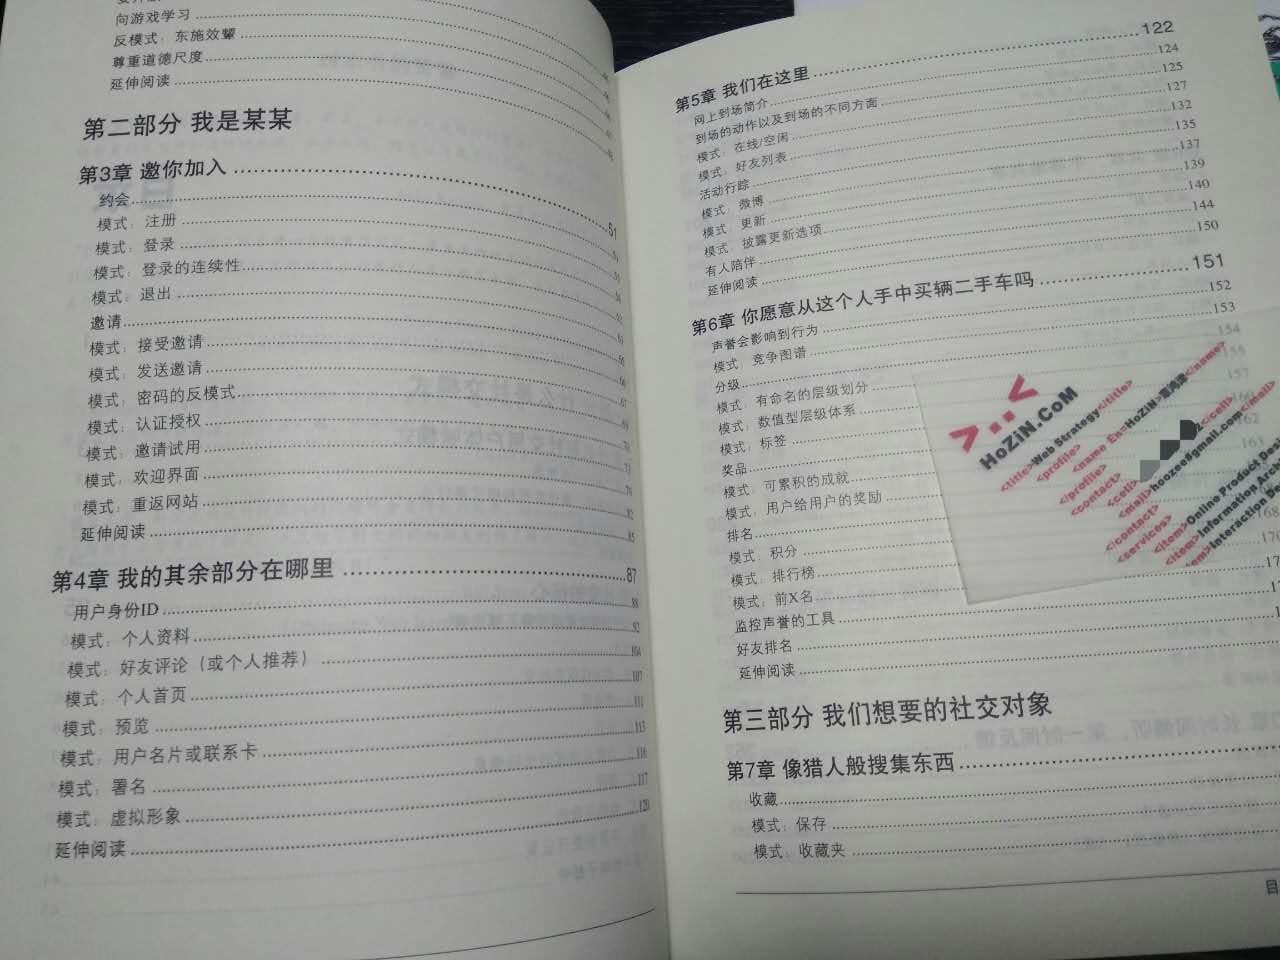 向游戏学习
反模式：东施效颦
尊重道德尺度
延伸阅读
第二部分 我是某某
第3章 邀你加入 51
约会
模式：注册
模式：登录
模式：登录的连续性
模式：退出
邀请
模式：接受邀请
模式：发送邀请
模式：密码的反模式
模式：认证授权
模式：邀请试用
模式：欢迎界面
模式：重返网站 82
延伸阅读 85
第4章 我的其余部分在哪里 87
用户身份ID 88
模式：个人资料 92
模式：好友评论（或个人推荐） 104
模式：个人首页 107
模式：预览 111
模式：用户名片或联系卡 113
模式：署名 116
模式：虚拟形象 117
延伸阅读 120
第5章 我们在这里 122
网上到场简介 124
到场的动作以及到场的不同方面 125
模式：在线/空闲 127
模式：好友列表 132
活动行踪 135
模式：微博 137
模式：更新 139
模式：披露更新选项 140
有人陪伴 144
延伸阅读 150
第6章 你愿意从这个人手中买辆二手车吗 151
声誉会影响到行为 152
模式：竞争图谱 153
分级 154
模式：有命名的层级划分 155
模式：数值型层级体系 157
模式：标签 160
奖品 162
模式：可累积的成就 163
模式：用户给用户的奖励
排名
模式：积分 168
模式：排行榜 170
模式：前X名
监控声誉的工具
好友排名
延伸阅读
第三部分 我们想要的社交对象
第7章 像猎人般搜集东西
收藏
模式：保存
模式：收藏夹
目
>..<
HoZiN.CoM
<title>Web Strategy</title>
<profile>
<name En=HoZiN> </name>
</profile>
<contact>
<cell> 2</cell>
<mail>hoozee@gmail.com</mail>
</contact>
<services>
<item>Online Product Des
<item>Information Arch
<item>Interaction De